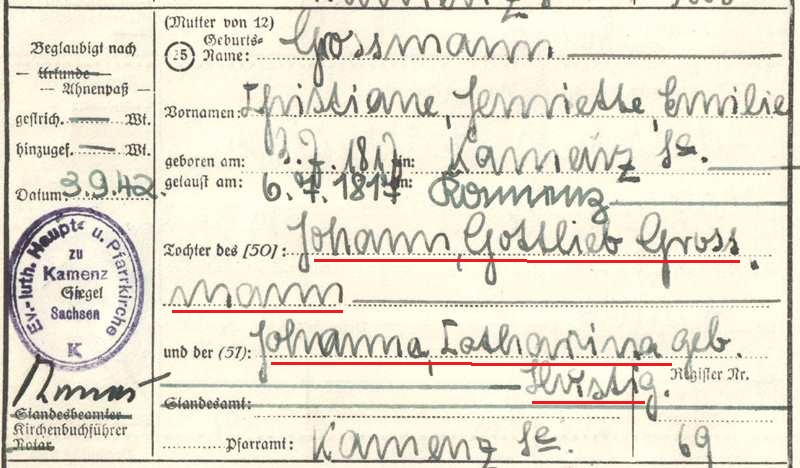 (Mutter von 12)
25 Geburts-Name: Grossmann
Vornamen: Christiane, Henriette, Emilie
geboren am: 3.7.1817 in: Kamenz Sa.
getauft am: 6.7.1817 in: Kamenz
Tochter des [50]: Johann, Gottlieb Gross
mann
und der (51): Johanna, Catharina geb.
Register Nr.
Standesamt:
Pfarramt: Kamenz Sa. 69
Beglaubigt nach
Urkunde
Ahnenpaß
gestrich. Wt.
hinzugef. Wt.
Datum: 3.9.42.
Ev.-luth. Haupt- u. Pfarrkirche
zu
Kamenz
Siegel
Sachsen
K
Standesbeamter
Kirchenbuchführer
Notar